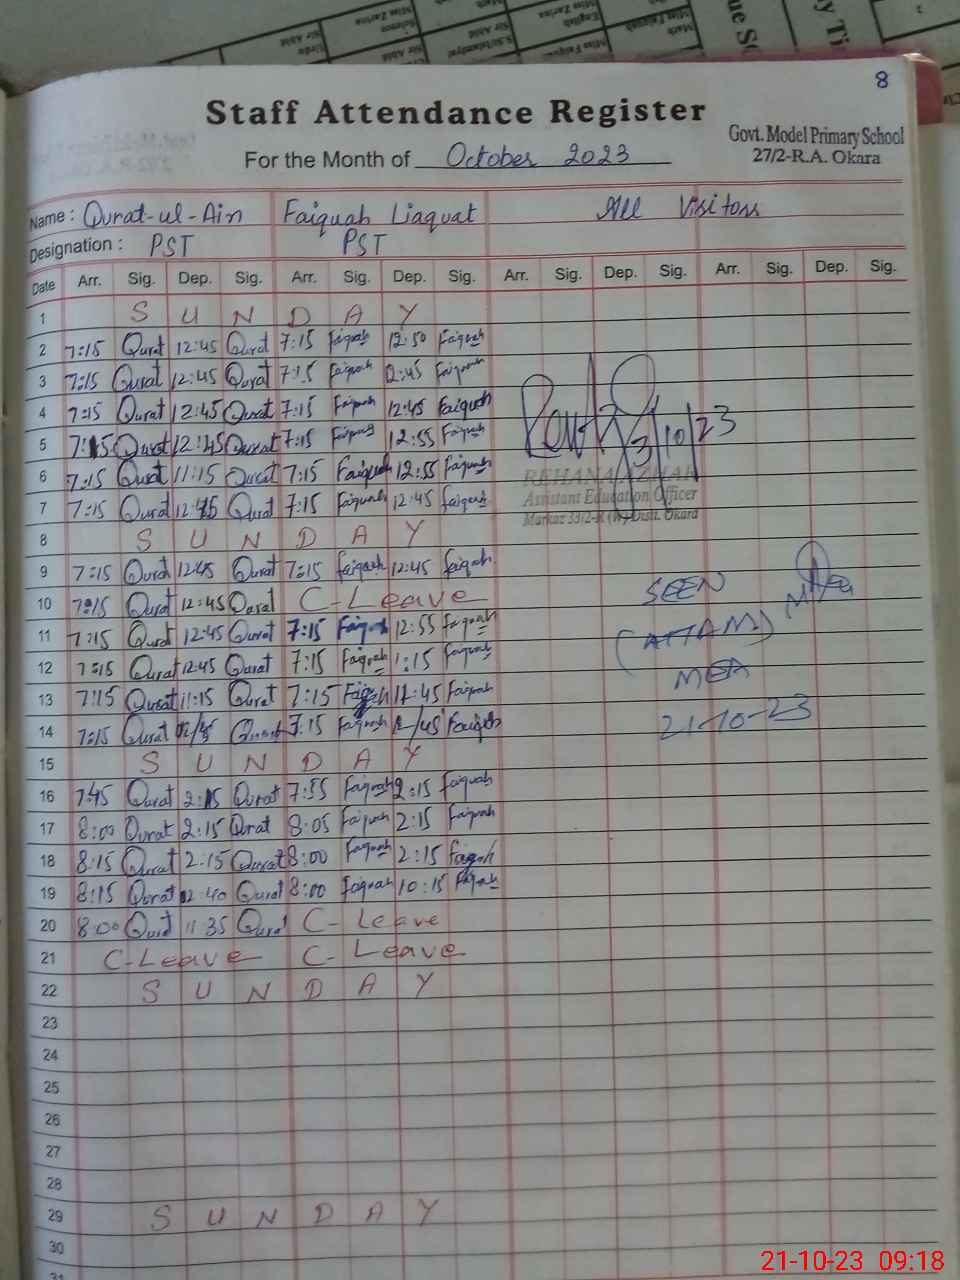 8
Staff Attendance Register
Govt. Model Primary School
For the Month of October 2023
27/2-R.A. Okara
Name : Qurat-ul-Ain Faiquah Liaquat All Visitors
Designation : PST PST
Date Arr. Sig. Dep. Sig. Arr. Sig. Dep. Sig. Arr. Sig. Dep. Sig. Arr. Sig. Dep. Sig.
1 S U N D A Y
2 7:15 Qurat 12:45 Qurat 7:15 Faiquah 12:50 Faiquah
3 7:15 Qurat 12:45 Qurat 7:15 Faiquah 12:45 Faiquah
4 7:15 Qurat 12:45 Qurat 7:15 Faiquah 12:45 Faiquah
5 7:15 Qurat 12:45 Qurat 7:15 Faiquah 12:55 Faiquah
3/10/23
6 7:15 Qurat 11:15 Qurat 7:15 Faiquah 12:55 Faiquah
REHANA AZHAR
7 7:15 Qurat 12:45 Qurat 7:15 Faiquah 12:45 Faiquah
Assistant Education Officer
Markaz 33/2-R (W) Distt. Okara
8 S U N D A Y
9 7:15 Qurat 12:45 Qurat 7:15 Faiquah 12:45 Faiquah
10 7:15 Qurat 12:45 Qurat C-Leave
SEEN
11 7:15 Qurat 12:45 Qurat 7:15 Faiquah 12:55 Faiquah
12 7:15 Qurat 12:45 Qurat 7:15 Faiquah 1:15 Faiquah
MEA
13 7:15 Qurat 11:15 Qurat 7:15 Faiquah 12:45 Faiquah
14 7:15 Qurat Qurat 7:15 Faiquah 12/45 Faiquah
21-10-23
15 S U N D A Y
16 7:45 Qurat 2:15 Qurat 7:55 Faiquah 2:15 Faiquah
17 8:00 Qurat 2:15 Qurat 8:05 Faiquah 2:15 Faiquah
18 8:15 Qurat 2:15 Qurat 8:00 Faiquah 2:15 Faiquah
19 8:15 Qurat 12:40 Qurat 8:00 Faiquah 10:15 Faiquah
20 8:00 Qurat 11:35 Qurat C-Leave
21 C-Leave C-Leave
22 S U N D A Y
23
24
25
26
27
28
29 S U N D A Y
30
31
21-10-23 09:18